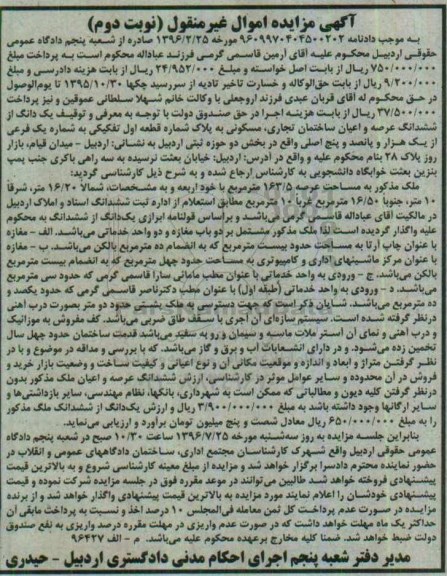 آگهی مزایده اموال غیرمنقول (نوبت دوم)
به موجب دادنامه ۹۶۰۹۹۷۰۴۰۴۵۰۰۲۰۲ مورخه ۱۳۹۶/۲/۲۵ صادره از شعبه پنجم دادگاه عمومی
حقوقی اردبیل محکوم علیه آقای آرمین قاسمی گرمی فرزند عباداله محکوم است به پرداخت مبلغ
۷۵۰/۰۰۰/۰۰۰ ریال از بابت اصل خواسته و مبلغ ۲۴/۹۵۲/۰۰۰ ریال از بابت هزینه دادرسی و مبلغ
۹/۲۰۰/۰۰۰ ریال از بابت حق‌الوکاله و خسارت تاخیر تادیه از سررسید چکها ۱۳۹۵/۱۰/۳۰ تا یوم‌الوصول
در حق محکوم له آقای قربان عبدی فرزند اروجعلی با وکالت خانم شهلا سلطانی عموقین و نیز پرداخت
۳۷/۵۰۰/۰۰۰ ریال از بابت هزینه اجرا در حق صندوق دولت با توجه به معرفی و توقیف یک دانگ از
ششدانگ عرصه و اعیان ساختمان تجاری، مسکونی به پلاک شماره قطعه اول تفکیکی به شماره یک فرعی
از یک هزار و پانصد و پنج اصلی واقع در بخش دو حوزه ثبتی اردبیل به نشانی: اردبیل - میدان قیام، بازار
روز پلاک ۲۸ بنام محکوم علیه و واقع در آدرس: اردبیل: خیابان بعثت نرسیده به سه راهی باکری جنب پمپ
بنزین بعثت خوابگاه دانشجویی به کارشناس ارجاع شده و به شرح ذیل کارشناسی گردید:
ملک مذکور به مساحت عرصه ۱۶۳/۵ مترمربع با خود اربعه و به مشخصات، شمالا ۱۶/۲۰ متر، شرقا
۱۰ متر، جنوبا ۱۶/۵۰ مترمربع غربا ۱۰ مترمربع مطابق استعلام از اداره ثبت ششدانگ اسناد و املاک اردبیل
در مالکیت آقای عباداله قاسمی گرمی می‌باشد و براساس قولنامه ابرازی یک‌دانگ از ششدانگ به محکوم
علیه واگذار گردیده است لذا ملک مذکور مشتمل بر دو باب مغازه و دو واحد خدماتی می‌باشد. الف - مغازه
با عنوان چاپ آرتا به مساحت حدود بیست مترمربع که به انضمام ده مترمربع بالکن می‌باشد. ب - مغازه
با عنوان مرکز ماشینهای اداری و کامپیوتری به مساحت حدود چهل مترمربع که به انضمام بیست مترمربع
بالکن می‌باشد. ج - ورودی به واحد خدماتی با عنوان مطب مامائی سارا قاسمی گرمی که حدود سی مترمربع
می‌باشد. د - ورودی به واحد خدماتی (طبقه اول) با عنوان مطب دکتر ناصر قاسمی گرمی که حدود یکصد و
ده مترمربع می‌باشد. شایان ذکر است که جهت دسترسی به ملک پشتی حدود دو متر بصورت درب آهنی
درنظر گرفته شده است. سیستم سازه‌ای آن آجری با سقف طاق ضربی می‌باشد. کف مفروش به موزائیک
و درب آهنی و نمای آن آستر ملات ماسه و سیمان و رو به سفید می‌باشد قدمت ساختمان حدود چهل سال
تخمین زده می‌شود. و در دارای انشعابات آب و برق و گاز می‌باشد. که با بررسی و مداقه در موضوع و با در
نظر گرفتن متراژ و ابعاد و اندازه و موقعیت مکانی آن و نوع اعیانی و کیفیت ساخت و وضعیت بازار خرید و
فروش در آن محدوده و سایر عوامل موثر در کارشناسی، ارزش ششدانگ عرصه و اعیان ملک مذکور بدون
درنظر گرفتن کلیه دیون و مطالباتی که ممکن است به شهرداری، بانکها، نظام مهندسی، سایر بازداشتی‌ها و
سایر ارگانها وجود داشته باشد به مبلغ ۳/۹۰۰/۰۰۰/۰۰۰ ریال و ارزش یک‌دانگ از ششدانگ ملک مذکور
را به مبلغ ۶۵۰/۰۰۰/۰۰۰ ریال معادل شصت و پنج میلیون تومان برآورد و ارزیابی می‌نماید.
بنابراین جلسه مزایده به روز سه‌شنبه مورخه ۱۳۹۶/۷/۲۵ ساعت ۱۰/۳۰ صبح در شعبه پنجم دادگاه
عمومی حقوقی اردبیل واقع شهرک کارشناسان مجتمع اداری، ساختمان دادگاههای عمومی و انقلاب در
حضور نماینده محترم دادسرا برگزار خواهد شد و مزایده از مبلغ معینه کارشناسی شروع و به بالاترین قیمت
پیشنهادی فروخته خواهد شد طالبین می‌توانند در موعد مقرره فوق در جلسه مزایده شرکت نموده و قیمت
پیشنهادی خودشان را اعلام نمایند مورد مزایده به بالاترین قیمت پیشنهادی واگذار خواهد شد و از برنده
مزایده در صورت عدم پرداخت کل ثمن معامله فی‌المجلس ۱۰ درصد اخذ و نسبت به پرداخت مابقی آن
حداکثر یک ماه مهلت خواهد داشت که در صورت عدم واریزی در مهلت مقرره درصد واریزی به نفع صندوق
دولت ضبط خواهد شد. ضمنا کلیه مخارج برعهده محکوم علیه می‌باشد. م - الف ۹۶۴۲۷
مدیر دفتر شعبه پنجم اجرای احکام مدنی دادگستری اردبیل - حیدری